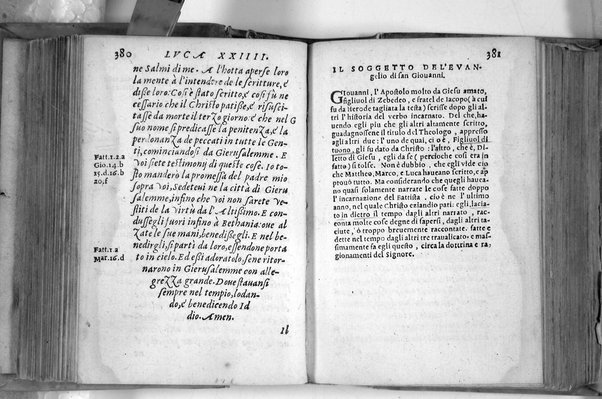 380 LVCA XXIIII.
ne Salmi di me. Allhotta aperse loro
la mente à l'intendere de le scritture, è
disse loro: Cosi è stato scritto, è cosi fu ne
cessario che il Christo patisse, è risusci-
tasse da morte il terzo giorno: è che nel
suo nome si predicasse la penitenza, è la
perdonanza de peccati in tutte le Gen-
ti, cominciando si da Gierusalemme. E
voi siete testimonij di queste cose. Io to-
sto manderò la promessa del padre mio
sopra voi, Sedete vi ne la città di Gieru
salemme, infino che voi non sarete ve-
stiti de la virtù da l'Altissimo. E con
dusse gli fuori infino à Bethania: oue al
zate le sue mani, benedisse gli. E nel be
nedir gli, si partì da loro, essendone porta
to in cielo. Ed essi adoratolo, se ne ritor-
narono in Gierusalemme con alle-
grezza grande. Doue stauansi
sempre nel tempio, lodan-
do, è benedicendo Id
dio. Amen.
Il
Fatt.1.2.a
Gio.14.b
15.d.16.b
20,f
Fatt.1.a
Mar.16.d
381
IL SOGGETTO DEL'EVAN-
gelio di san Giouanni.
GIouanni, l'Apostolo molto da Giesu amato,
figliuol di Zebedeo, e fratel de Iacopo( à cui
fu da Herode tagliata la testa) scrisse dopo gli al-
tri l'historia del verbo incarnato. Del che, ha-
uendo egli piu che gli altri altamente scritto,
guadagnossene il titolo del Theologo, appresso
agli altri due: l'uno de quai, ci o è, Figliuol di
tuono, gli fu dato da Christo: l'altro, che è, Di-
letto di Giesu, egli da se (percioche cosi era in
fatto) si tolse. Non è dubbio, che egli vide cio
che Mattheo, Marco, e Luca haueano scritto, e ap
prouò tutto. Ma considerando che quegli haueano
quasi solamente narrate le cose fatte doppo
l'incarnatione del Battista, cioè ne l'ultimo
anno, nel quale Christo
in dietro il tempo dagli altri narrato, rac-
conta molte cose degne di memoria, dagli altri ta-
ciute, ò troppo breuemente raccontate. fatte e
dette nel tempo dagli altri tre traualicato. e mas-
simamente fa egli questo, circa la dottrina e ra-
gionamenti del Signore.